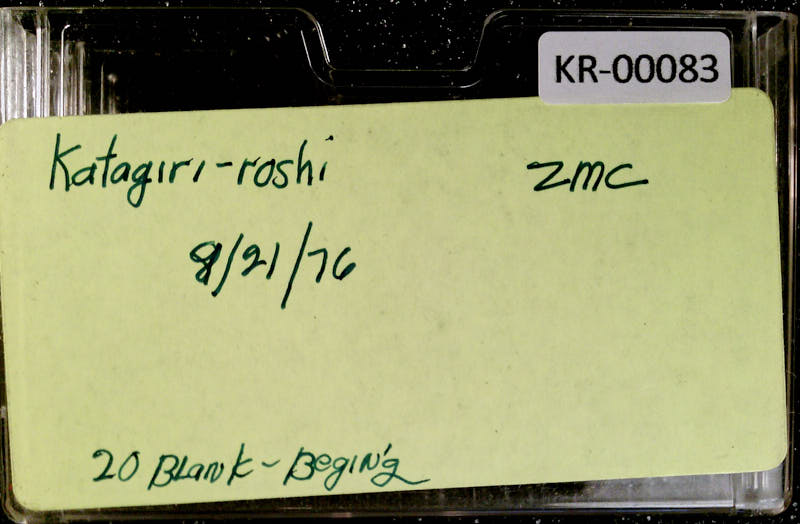 KR-00083
Katagiri-roshi ZMC
8/21/76
20 Blank - Begin'g